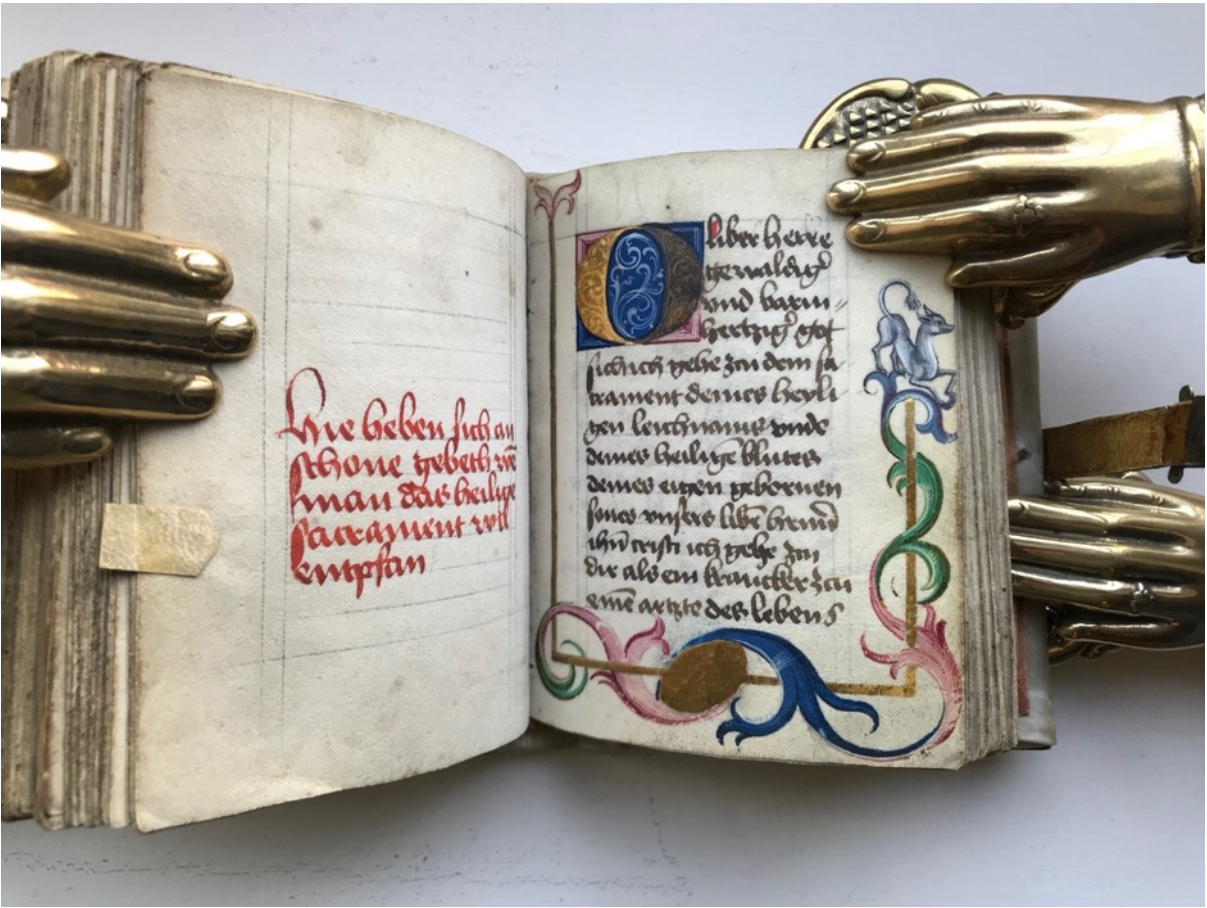 Hie heben sich an
schone gebeth wē
man das heilige
sacrament wil
entpfan
O liber herre
gewaldig᷒
vnd barm〃
hertzig᷒ got
sich ich gehe zcu dem sa-
crament deines heyli
gen leichnams vnde
deines heiligē blutes
deines eigen gebornen
sones vnsers libē
ihū cristi ich gehe zcu
dir als ein krancker zcu
einē artzte des lebens